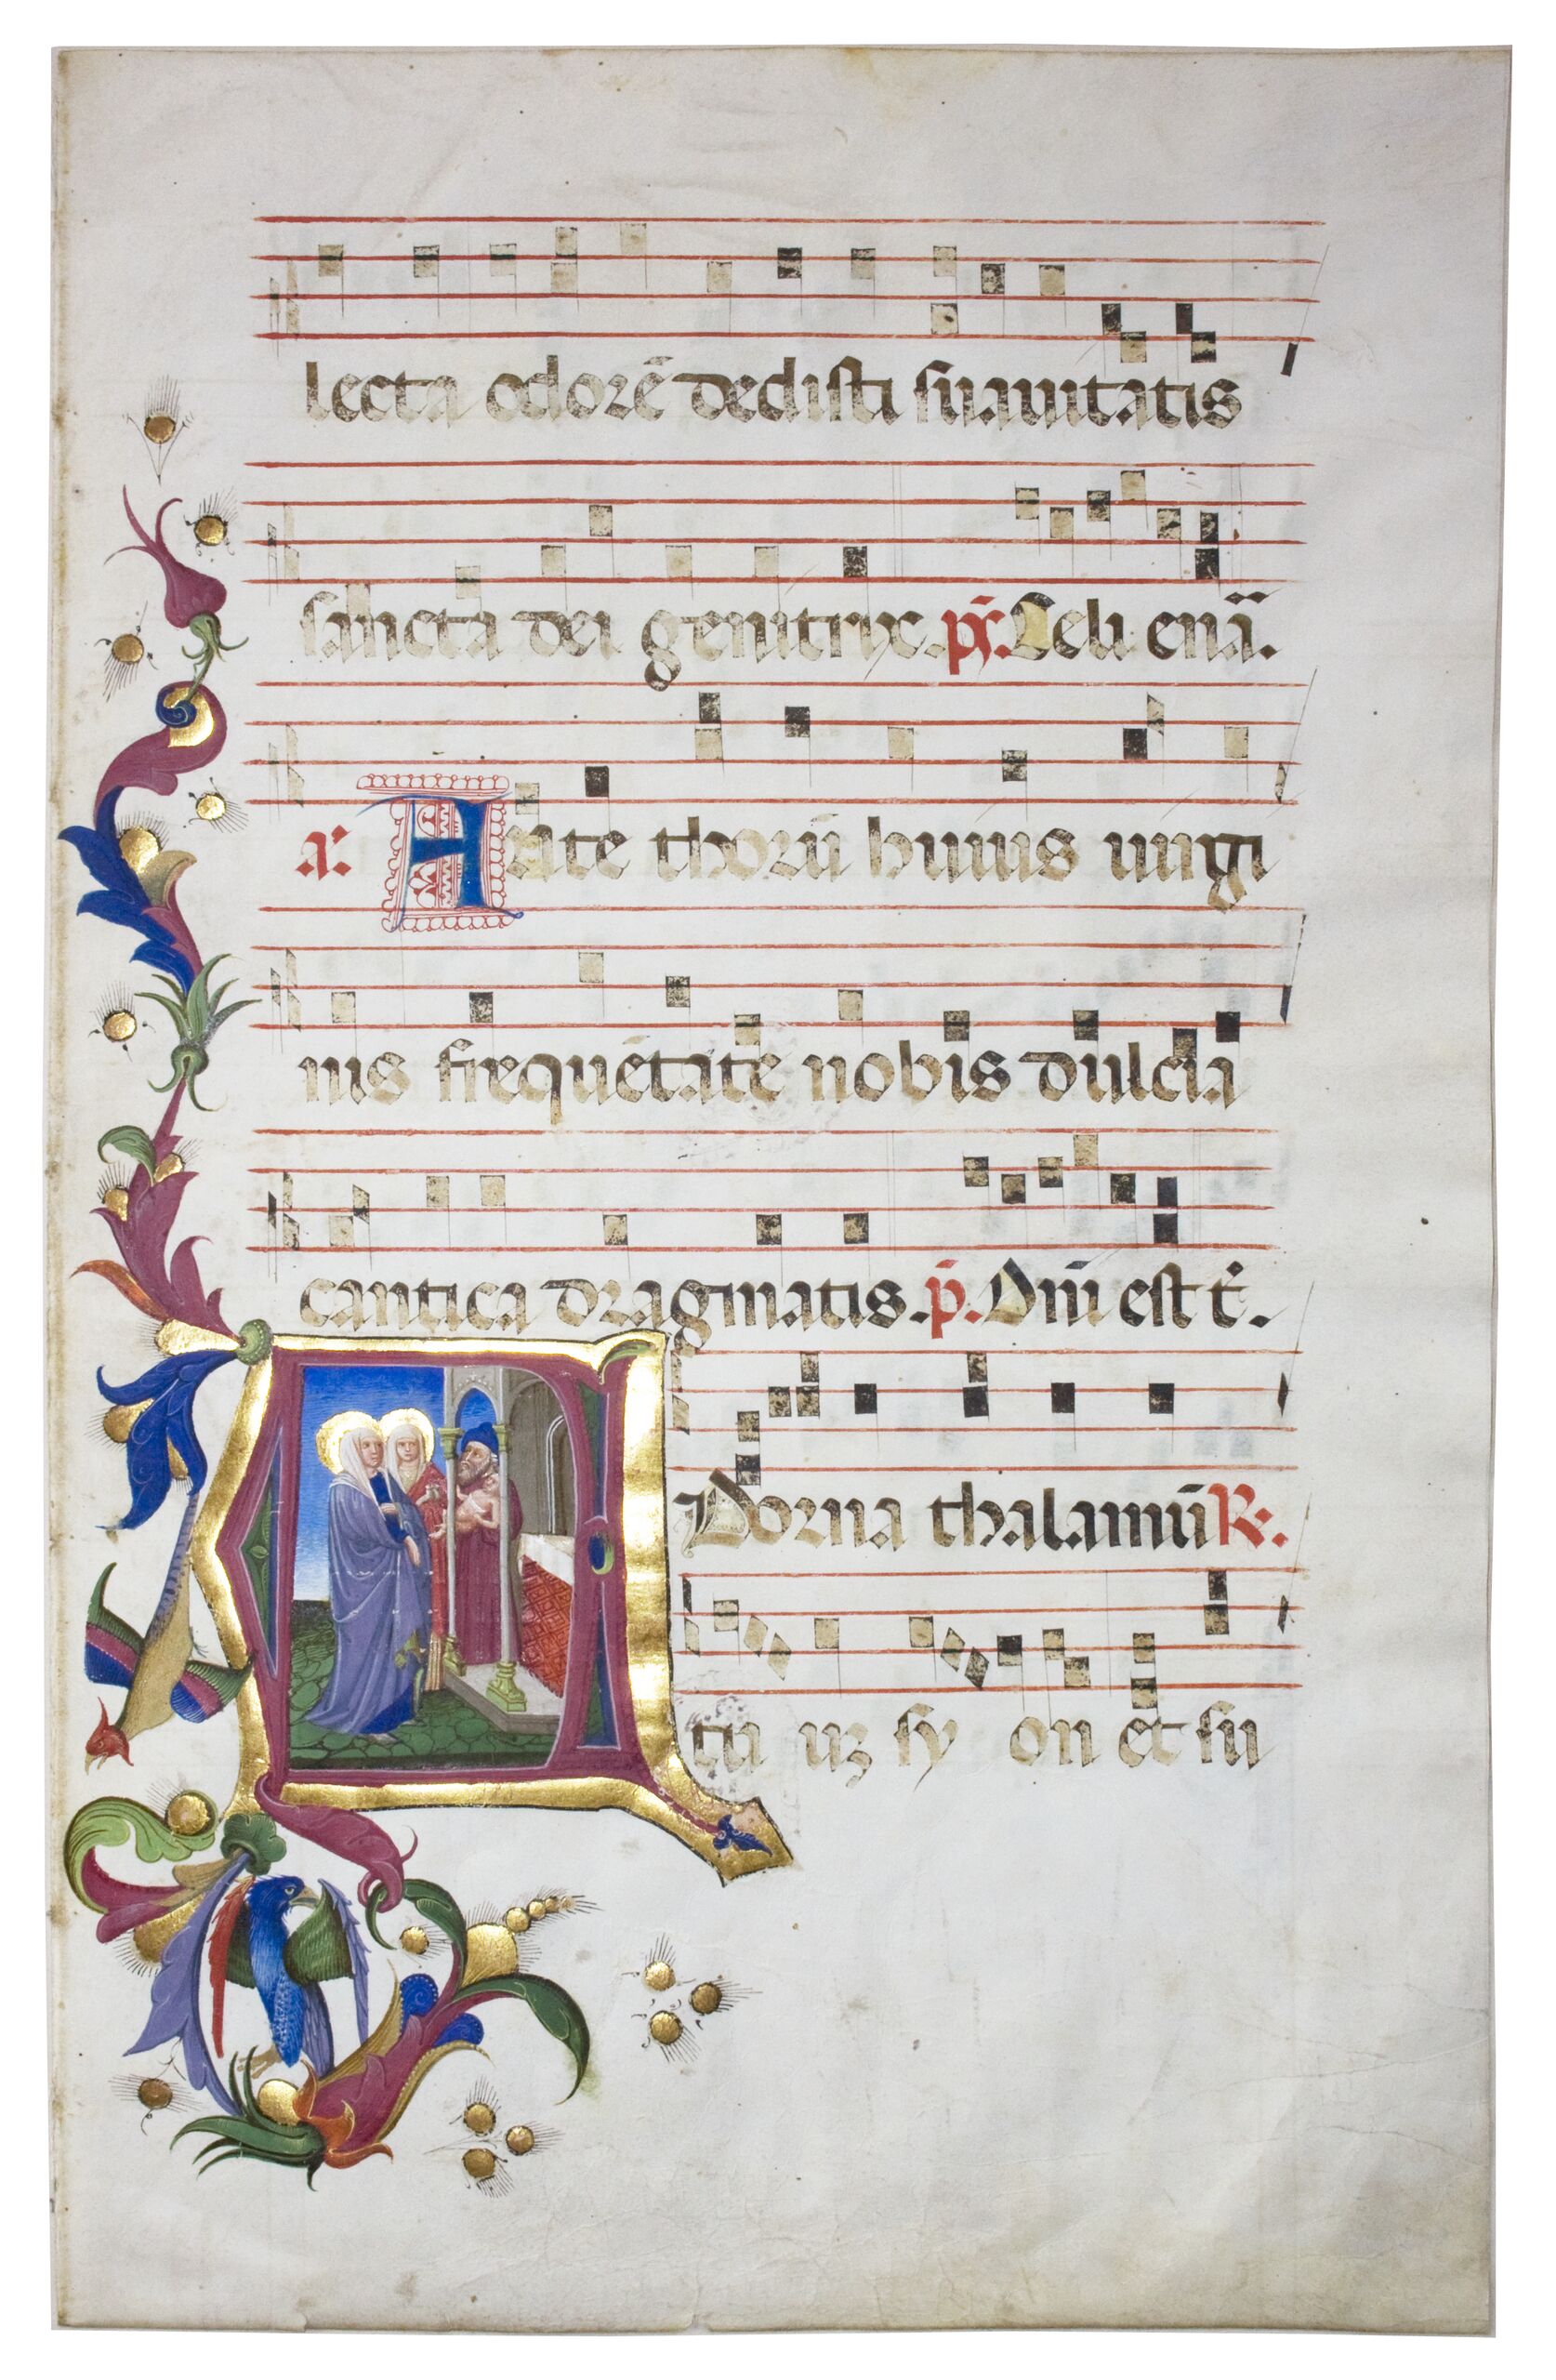 lecta odorē dedisti suauitatis
sancta dei genitrix. p̄s. Celi enā.
a. Ante thorū huius uirgi
nis frequētate nobis dulcia
cantica dragmatis. p̄. Dn̄i est t̄.
A Dorna thalamū R.
tu uꝫ sy on et su